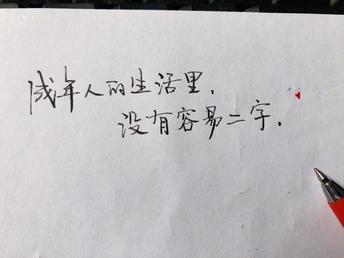 成年人的生活里,
没有容易二字.